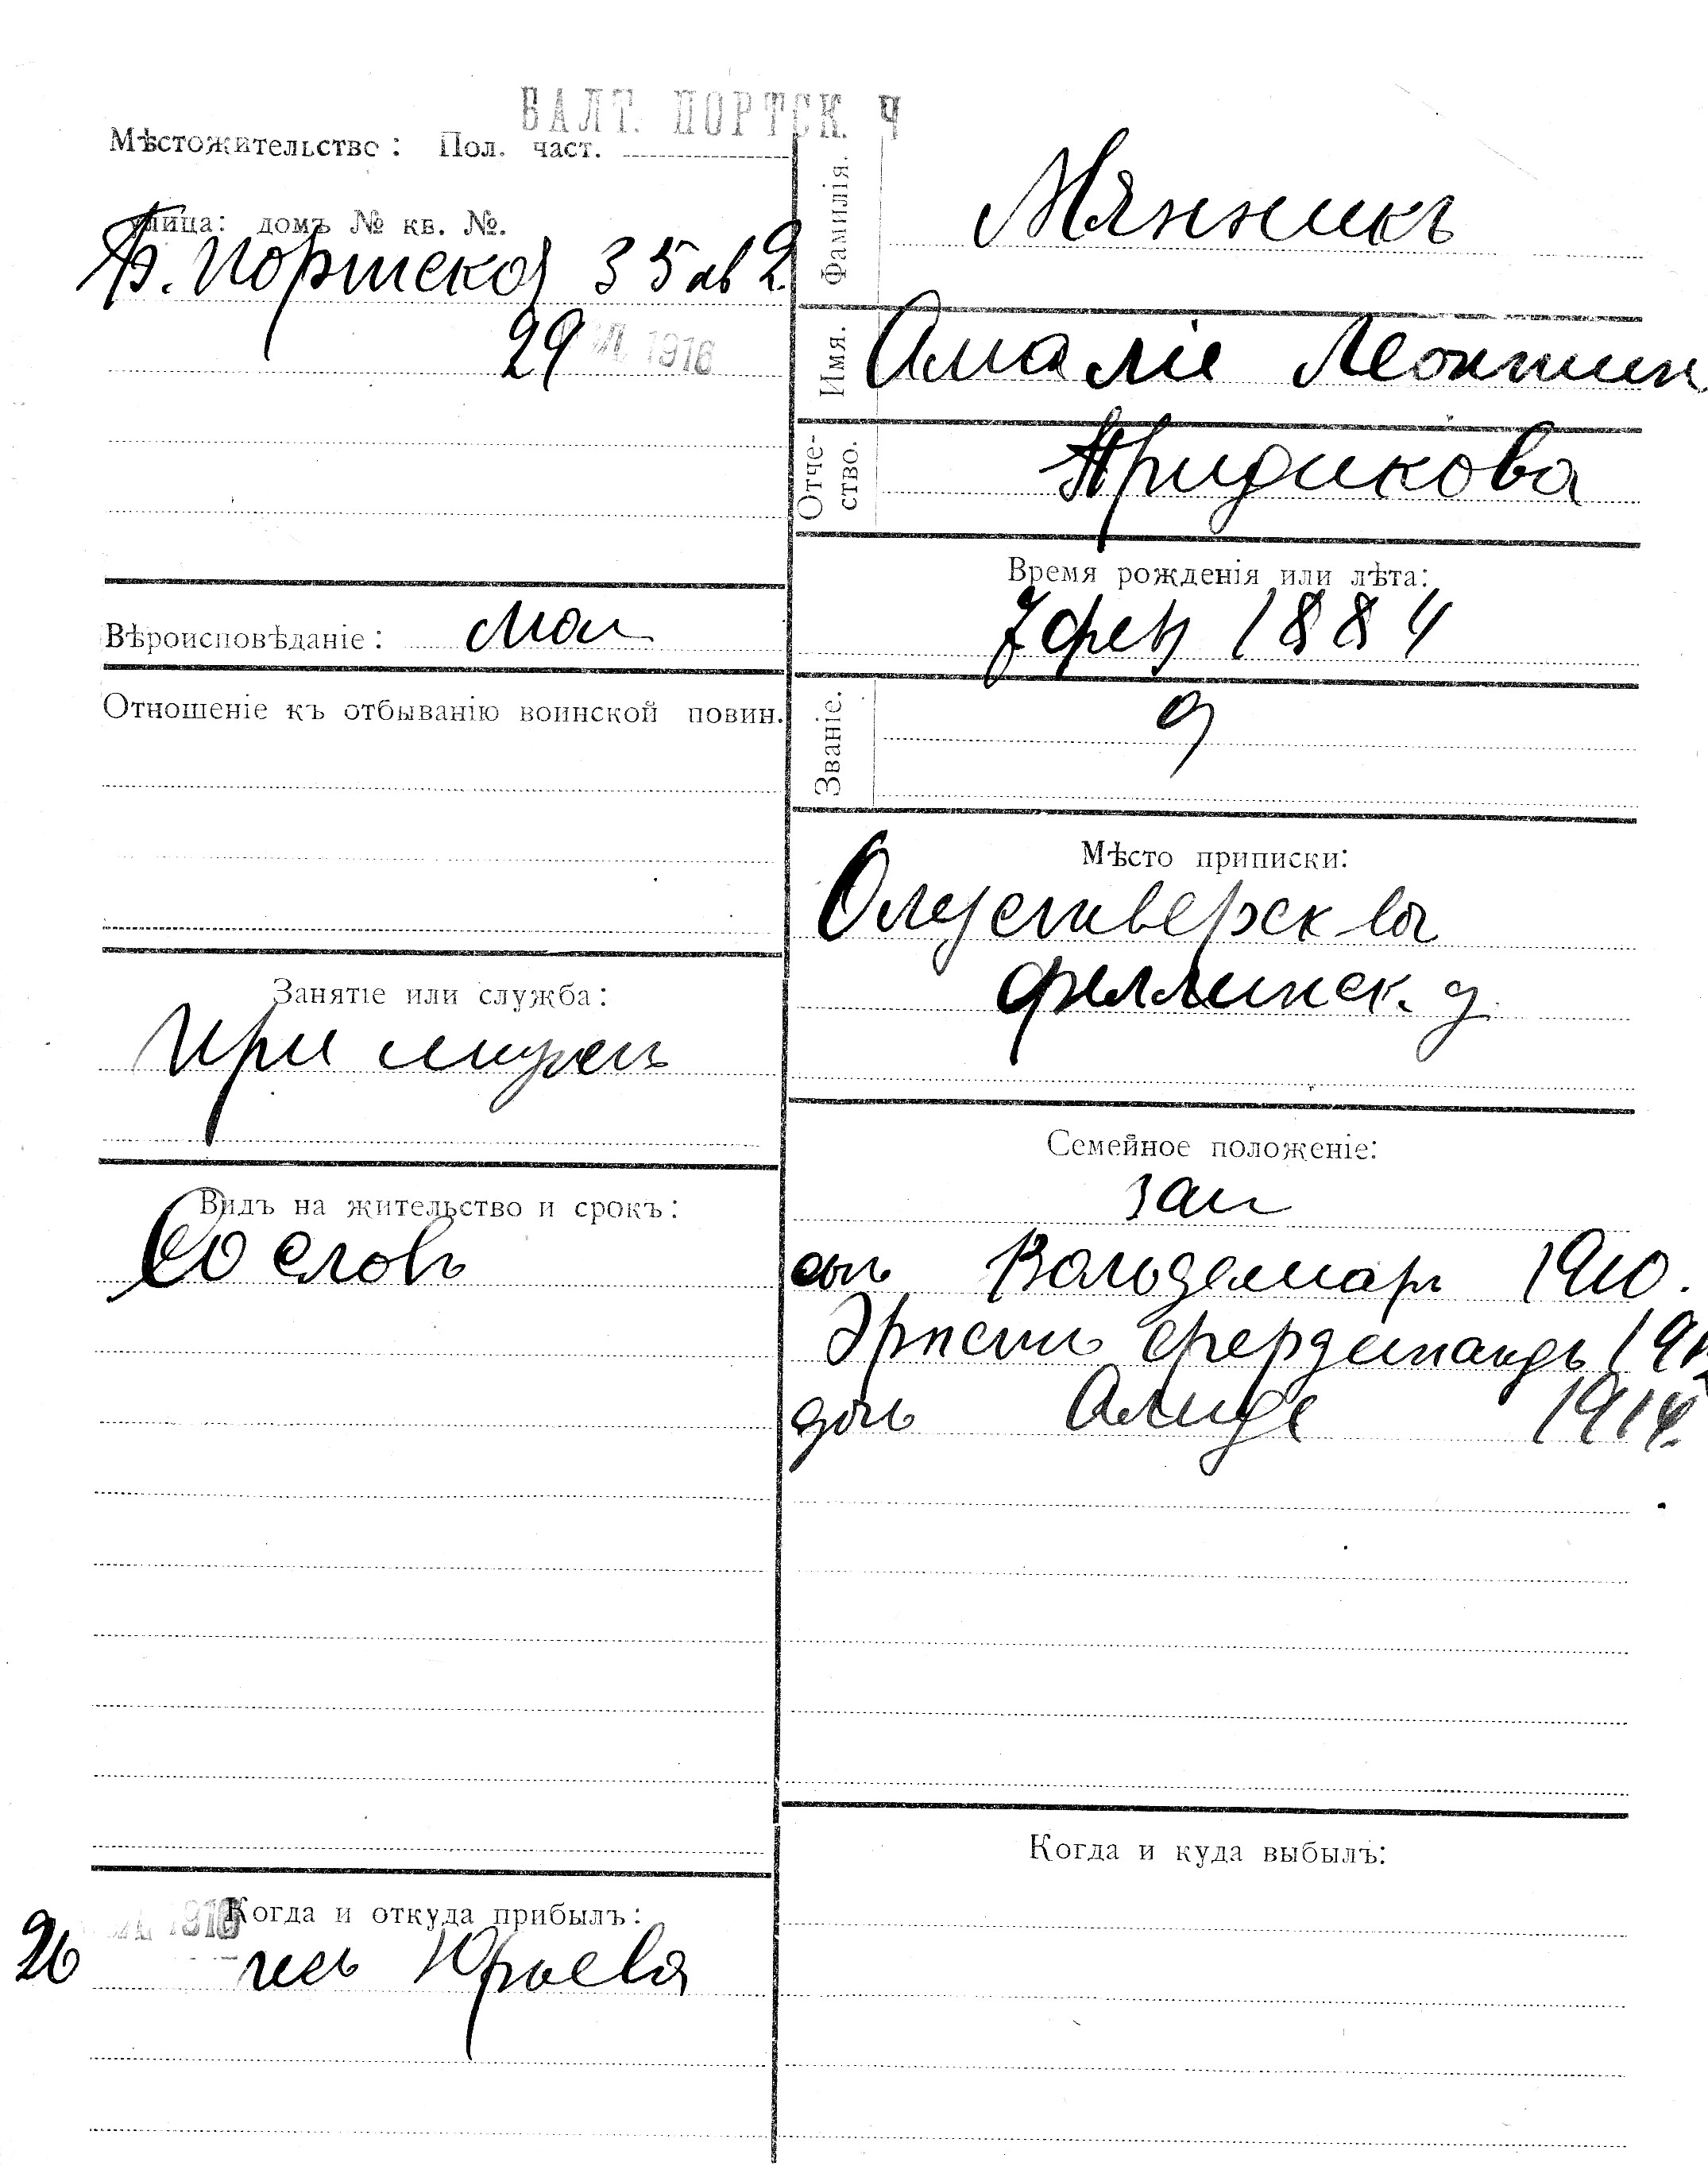 БАЛТ. ПОРТСК. Ч
Мѣстожительство: Пол. част.
улица: домъ № кв. №.
Б. Портская 35 кв 2
29 1916
Вѣроисповѣданіе:
Отношеніе къ отбыванію воинской повин.
Занятіе или служба:
При мужѣ
Видъ на жительство и срокъ:
Со словъ
Когда и откуда прибылъ:
26 1916
изъ Юрьева
Фамилія.
Мянникъ
Имя.
Амаліе Леонтин
Отчество.
Придикова
Время рожденія или лѣта:
7 фев 1884
Званіе.
Мѣсто приписки:
Олуствверск вол
Феллинск. у
Семейное положеніе:
зам
сынъ Вольдемаръ 1910.
Эрнстъ Фердинандъ 1912
дочь Алиде 1914
Когда и куда выбылъ: